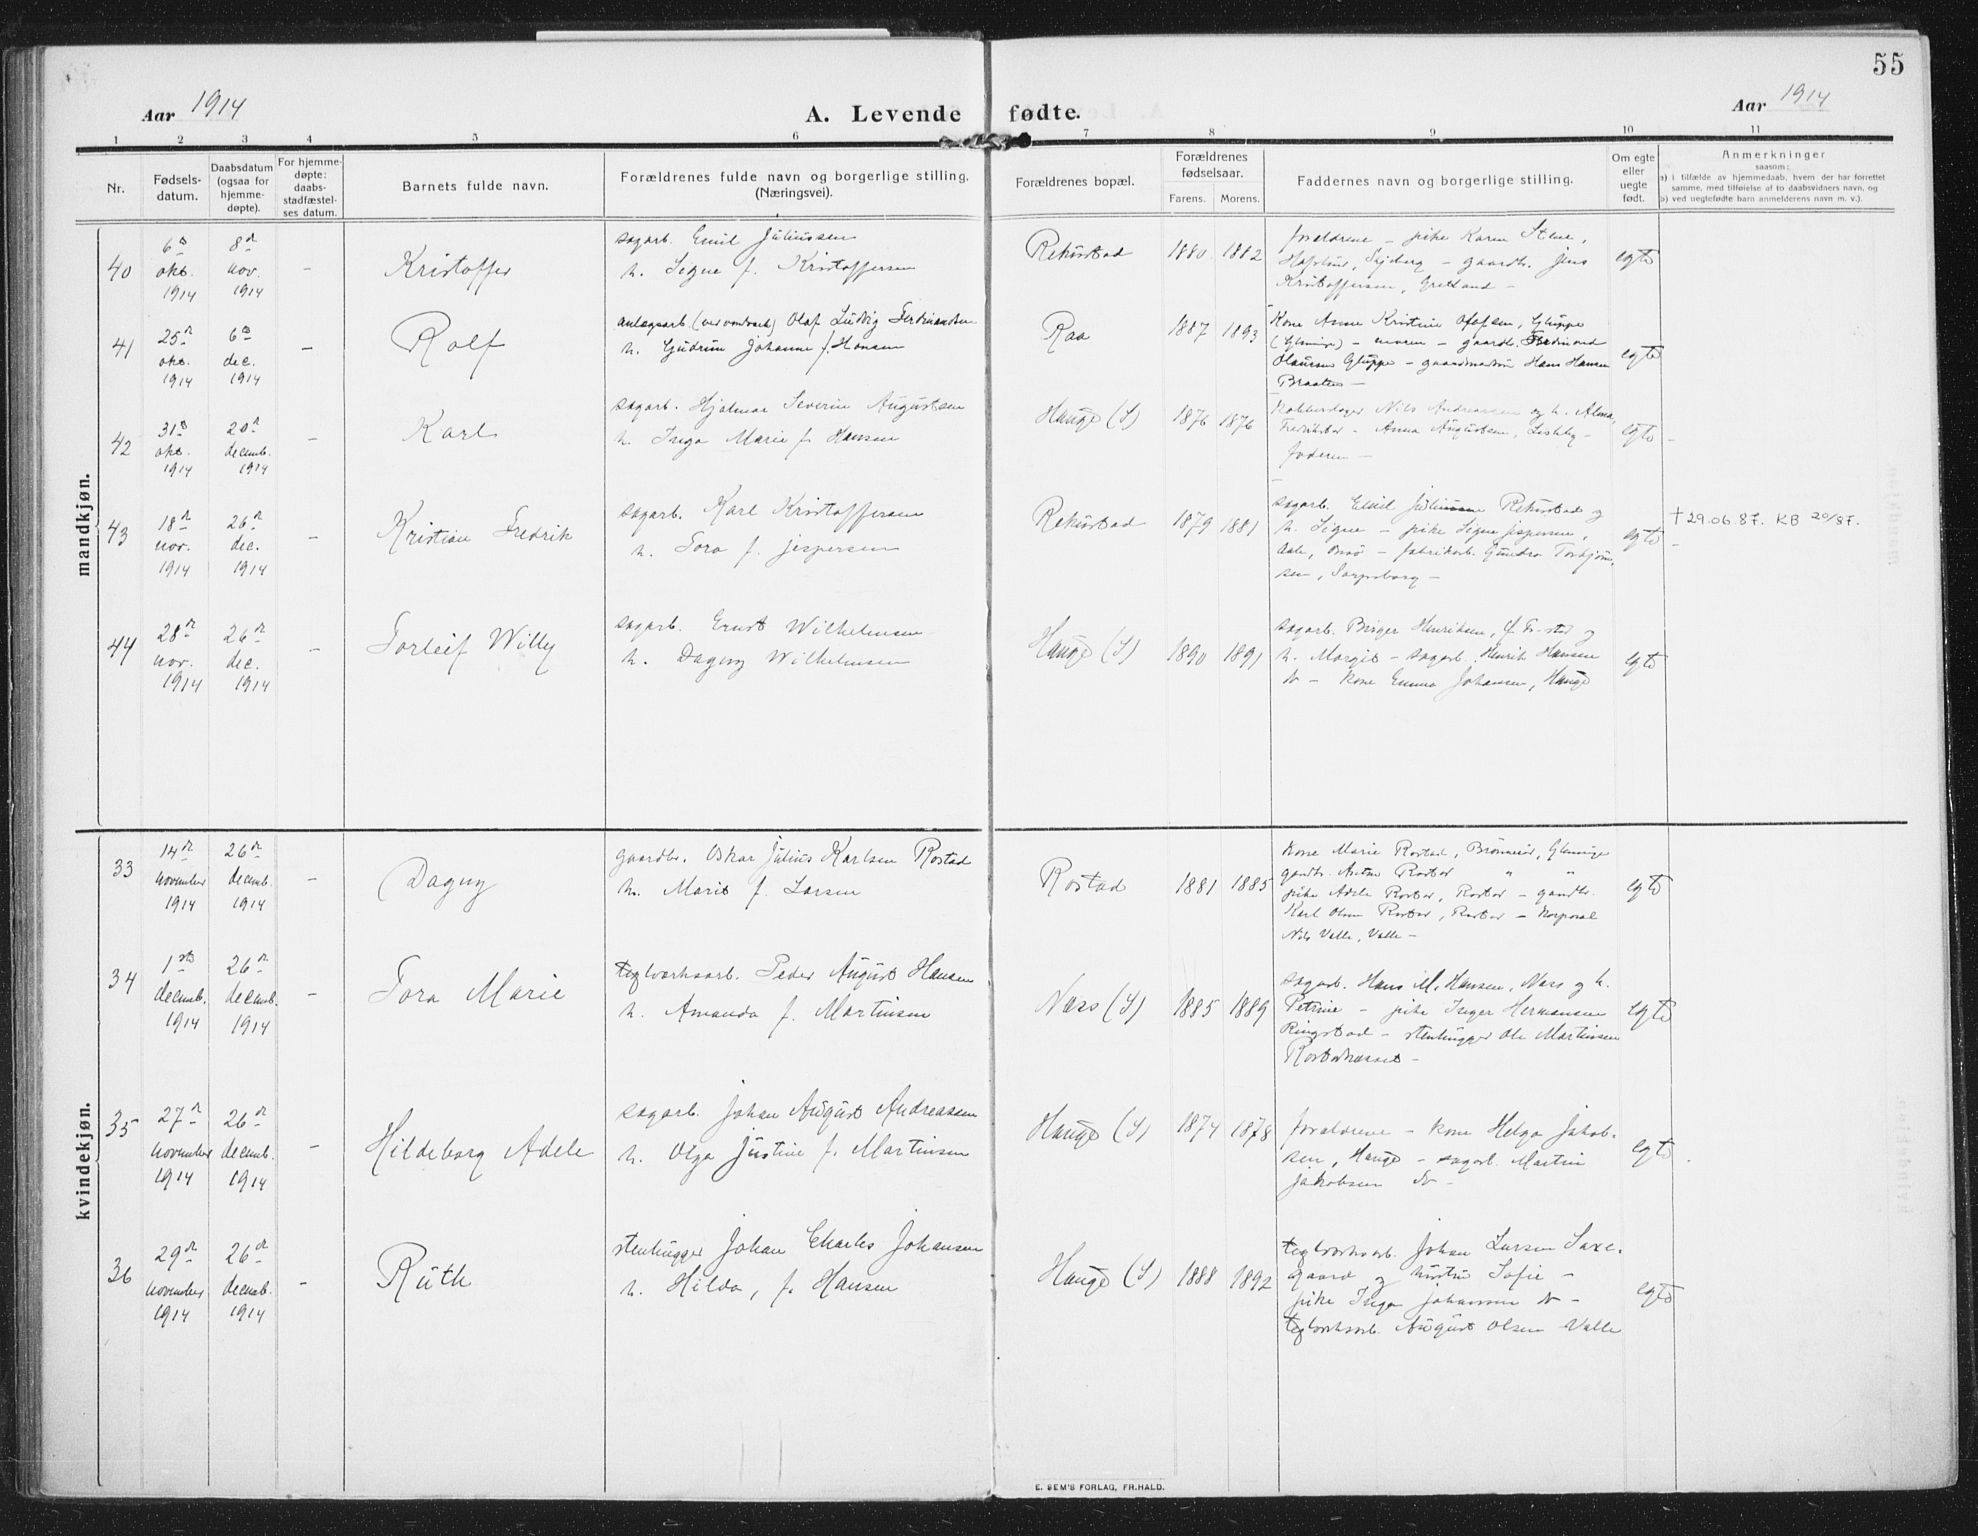 55
Aar 1914
A. Levende fødte.
Aar 1914
1 2 3 4 5 6 7 8 9 10 11
Nr.
Fødsels-
datum.
Daabsdatum
(ogsaa for
hjemme-
døpte).
For hjemme-
døpte:
daabs-
stadfæstel-
ses datum.
Barnets fulde navn.
Forældrenes fulde navn og borgerlige stilling.
(Næringsvei).
Forældrenes bopæl.
Forældrenes
fødselsaar.
Farens. Morens.
Faddernes navn og borgerlige stilling.
Om egte
eller
uegte
født.
Anmerkninger
saasom:
a) i tilfælde av hjemmedaab, hvem der har forrettet
samme, med tilføielse af to daabsvidners navn, og
b) ved uegtefødte barn anmelderens navn m. v.).
mandkjøn.
40
6
okt.
1914
8
nov.
1914
–
Kristoffer
sagarb. Emil Juliussen
h. Signe f. Kristoffersen
Rekustad
1880 1882
forældrene – pike Karen Stene,
gaardbr. Jens
Kristoffersen,
egte
41
25
okt.
1914
6
dec.
1914
–
Rolf
anlægsarb. Olaf Ludvig Ferdinandsen
h. Gudrun Johanne f. Hansen
Raa
1887 1893
Kone Anne Kristine Olafsen, Gluppe
(Glemmige) – moren – gaardb. Ferdinand
Olaussen Gluppe – Hans Hansen
Braaten –
egte
42
31
okt.
1914
20
decemb.
1914
–
Karl
sagarb. Hjalmar Severin Augustsen
h. Inga Marie f. Hansen
Hauge (S)
1876 1876
Kobberslager Nils Andreassen og h. Alma,
Fredrikstad – Anna Augustsen, Lisleby –
faderen –
egte
43
18
nov.
1914
26
dec.
1914
–
Kristian Fredrik
sagarb. Karl Kristoffersen
h. Tora f. Jespersen
Rekustad
1879 1881
sagarb. Emil Juliussen Rekustad og
h. Signe – pike Signe Jespersen,
Onsø – fabrikarb.
sen, Sarpsborg –
egte
†29.06.87. KB 20/87.
44
28
nov.
1914
26
dec.
1914
–
Torleif Willy
sagarb. Ernst Wilhelmsen
h. Dagny Wilhelmsen
Hauge (S)
1890 1891
sagarb. Birger Henriksen, Gl. Fr-stad og
h. Margit – sagarb. Henrik Hansen
– kone Emma Johansen, Hauge
egte
kvindekjøn.
33
14
november
1914
26
decemb.
1914
–
Dagny
gaardbr. Oskar Julius Karlsen Rostad
h. Marit f. Larsen
Rostad
1881 1885
Kone Marie Rostad, Glemmige
gaardbr. Anton Rostad " "
pike Adele Rostad, Rostad – gaardbr.
Karl Olsen Rostad, Rostad – korporal
Nils Valle, Valle –
egte
34
1
decemb.
1914
26
decemb.
1914
–
Tora Marie
teglverksarb. Peder August Hansen
h. Amanda f. Martinsen
Næss (S)
1885 1889
sagarb. Hans M. Hansen, Næss og h.
Petrine – pike Inger Hermansen
Ringstad – stenhugger Ole Martinsen
egte
35
27
november
1914
26
decemb.
1914
–
Hildeborg Adele
sagarb. Johan August Andreassen
h. Olga Justine f. Martinsen
Hauge (S)
1874 1878
forældrene – kone Helga Jakob-
sen, Hauge – sagarb. Martin
Jakobsen
egte
36
29
november
1914
26
decemb.
1914
–
Ruth
stenhugger Johan Charles Johansen
h. Hilda, f. Hansen
Hauge (S)
1888 1892
teglverksarb. Johan Larsen Saxe-
gaard og hustru Sofie –
pike Inga Johansen
teglverksarb. August Olsen Valle
egte
E. SEM'S FORLAG, FR.HALD.